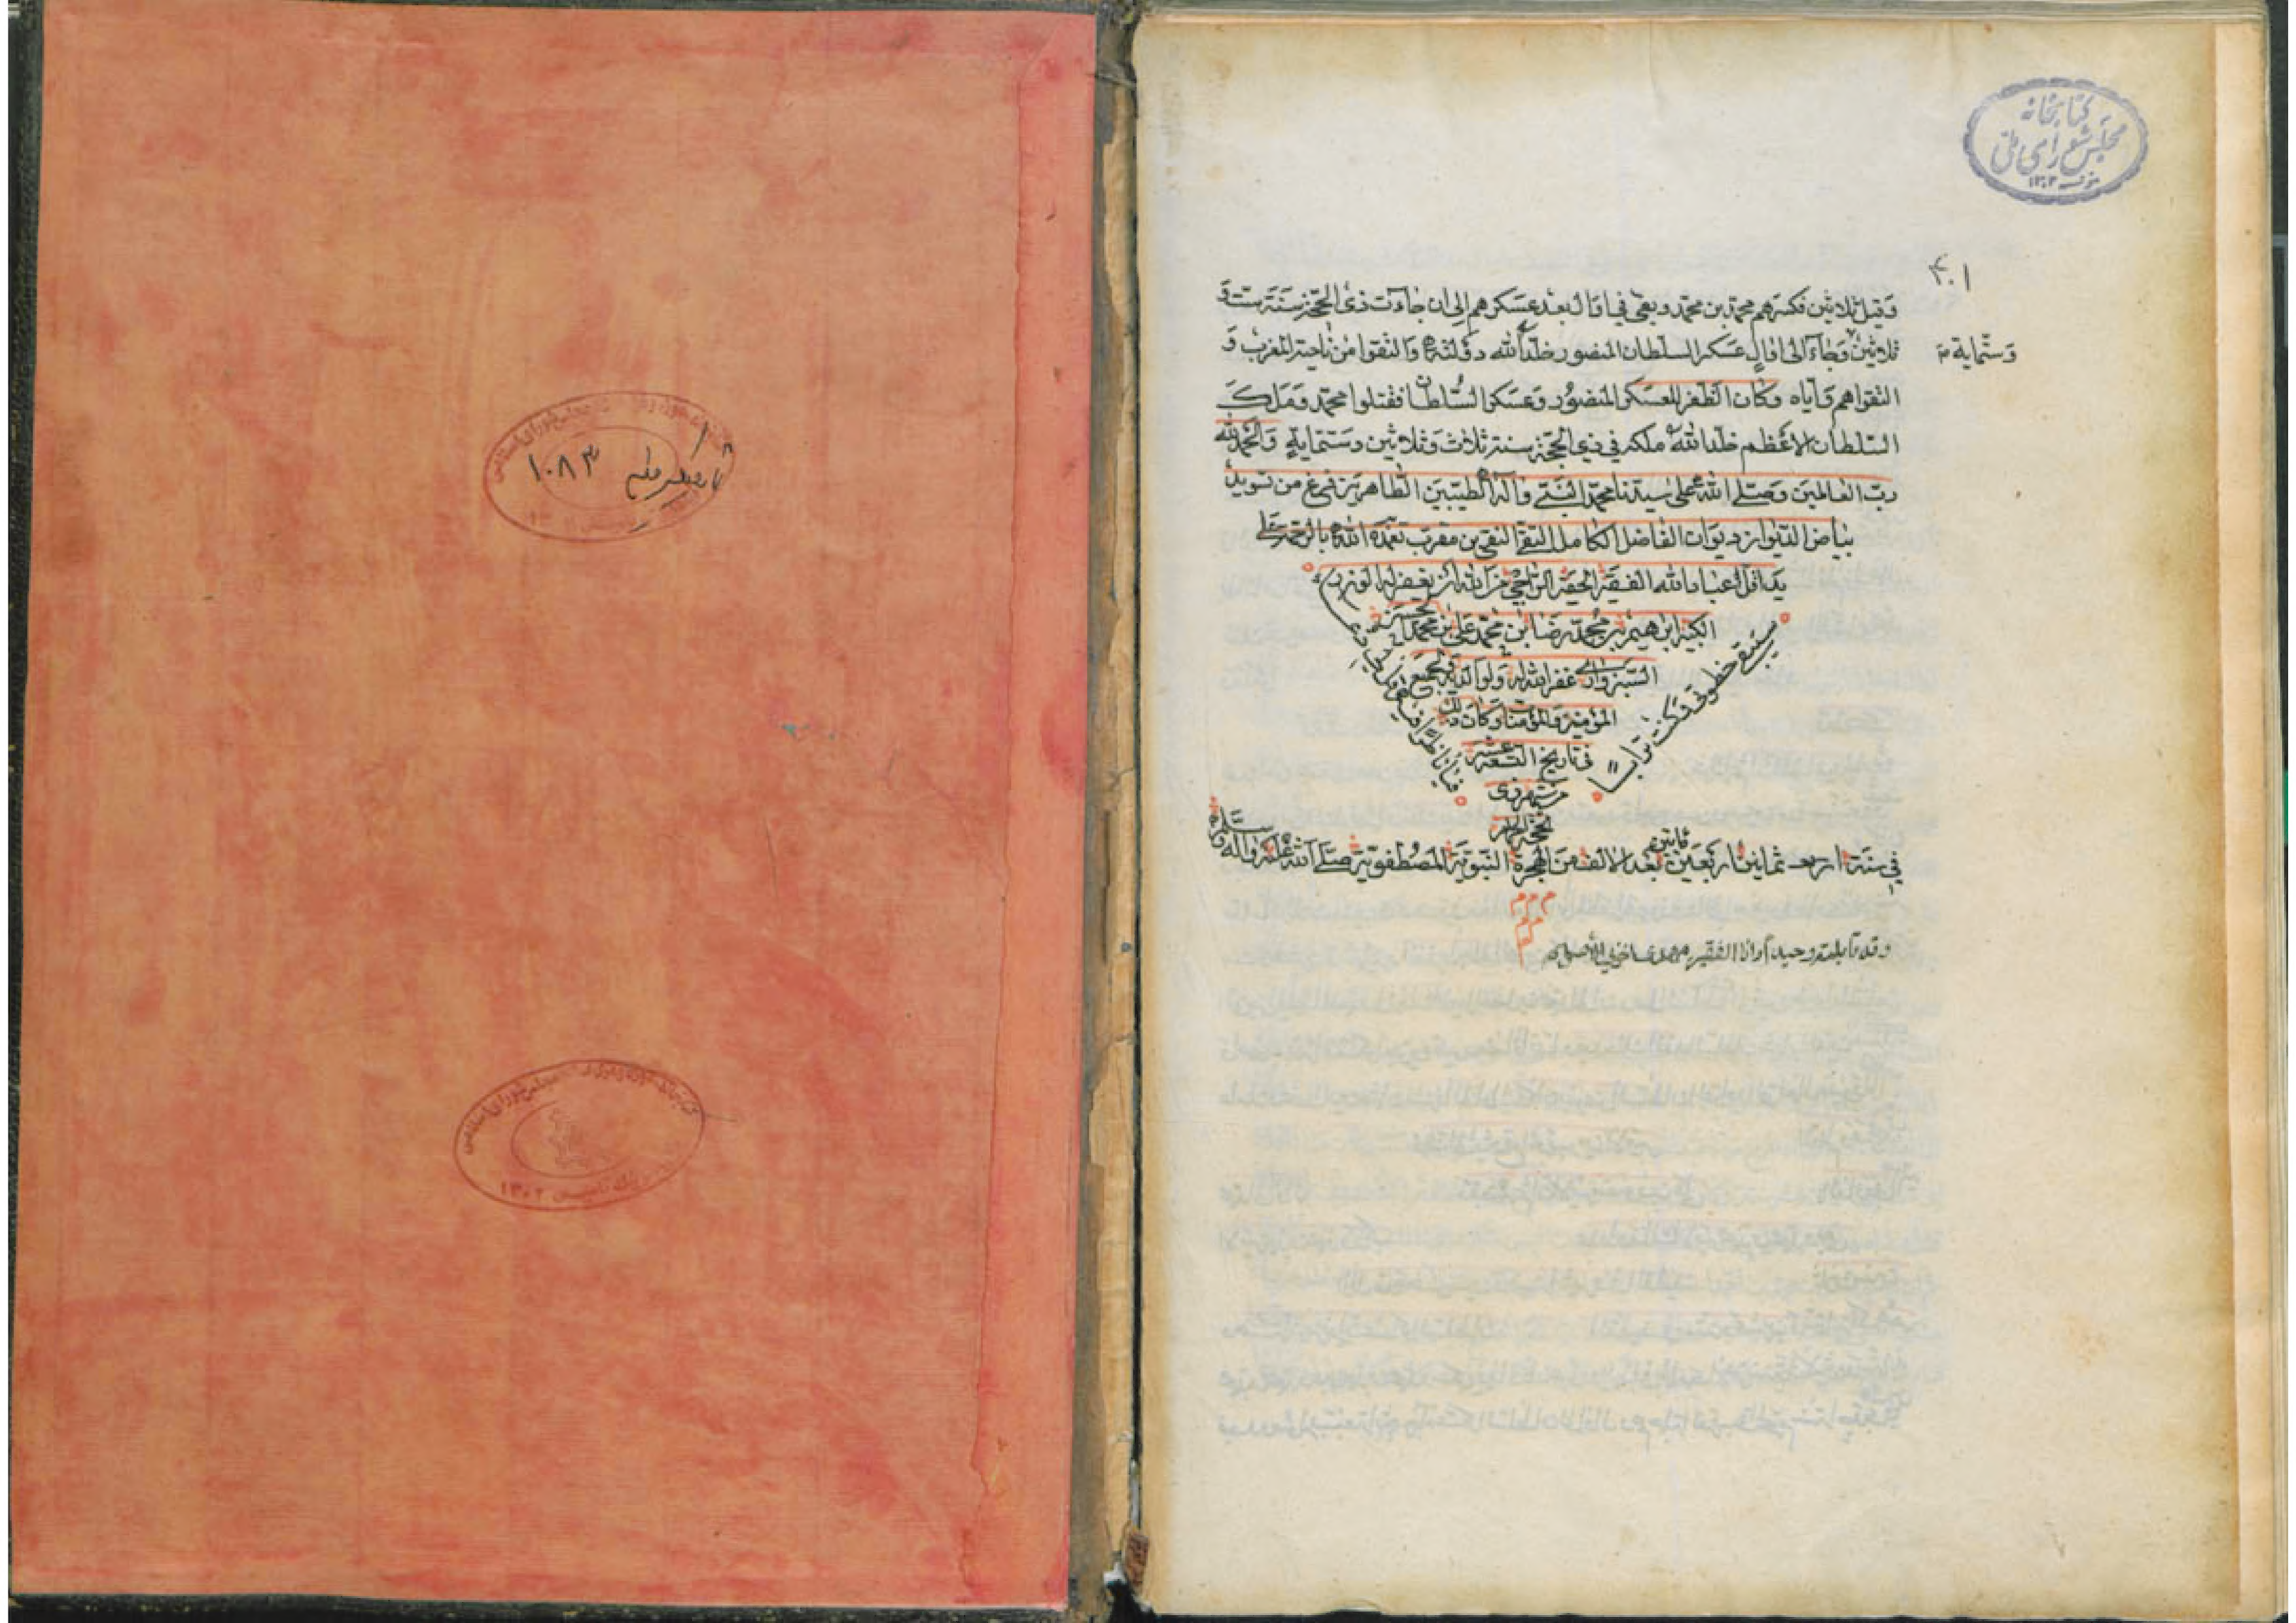 کتابخانه
مجلس شورای ملی
۱۳۰۲
۴۰۱
وَقيل ثلاثين فكسرهم محمّد بن محمّد وبقى في اوال بعد عسكرهم الى ان جاءت ذى الحجّة سَنَة ستّ وَ
ثلاثين وَجاء الى اوال عسكر السلطان المنصور خلّد الله دولته وَالتقوا من ناحية المغرب وَ
وَستّماية
التقوا هم وَاياه وكان الظفر للعسكر المنصور وَعسكر السُّلطان فقتلوا محمّد وَمَلك
السّلطان الاعظم خلّد الله ملكه في ذي الحجّة سنة ثلاث وَثلاثين وستّماية وَالحمد لله
ربّ العالمين وَصلّى الله على سيّدنا محمّد النّبيّ وآله الطيّبين الطّاهرين فرغ من تسويد
بياض الدّيوان ديوان الفاضل الكامل التقيّ النقيّ بن مقرب تغمّده الله بالرّحمة على
يد اقلّ عباد الله الفقير الحقير الرّاجي من الله ان يغفر له الوزر
الكبير ابرهيم بن محمّد رضا ابن محمّد علي بن محمّد الحسن
السّبزواري غفر الله له ولوالديه لجميع
المؤمنين وَالمؤمنات وَكان ذلك
في تاريخ التّسعة عشر
من شهر ذى
الحجّة الحرام
ستبقى خطوطي وَكنت ترابا
فيا ناظرا فيه
في سَنَة اربع ثمانين اربَعين بَعد الالف منَ الهجرة النّبَويّة المصُطفويّة صَلّى الله عَليه وَآله وَسَلّم
وقد قابلته وحيداً وانا الفقير مهدى
۱۰۸۳
۱۳۰۲